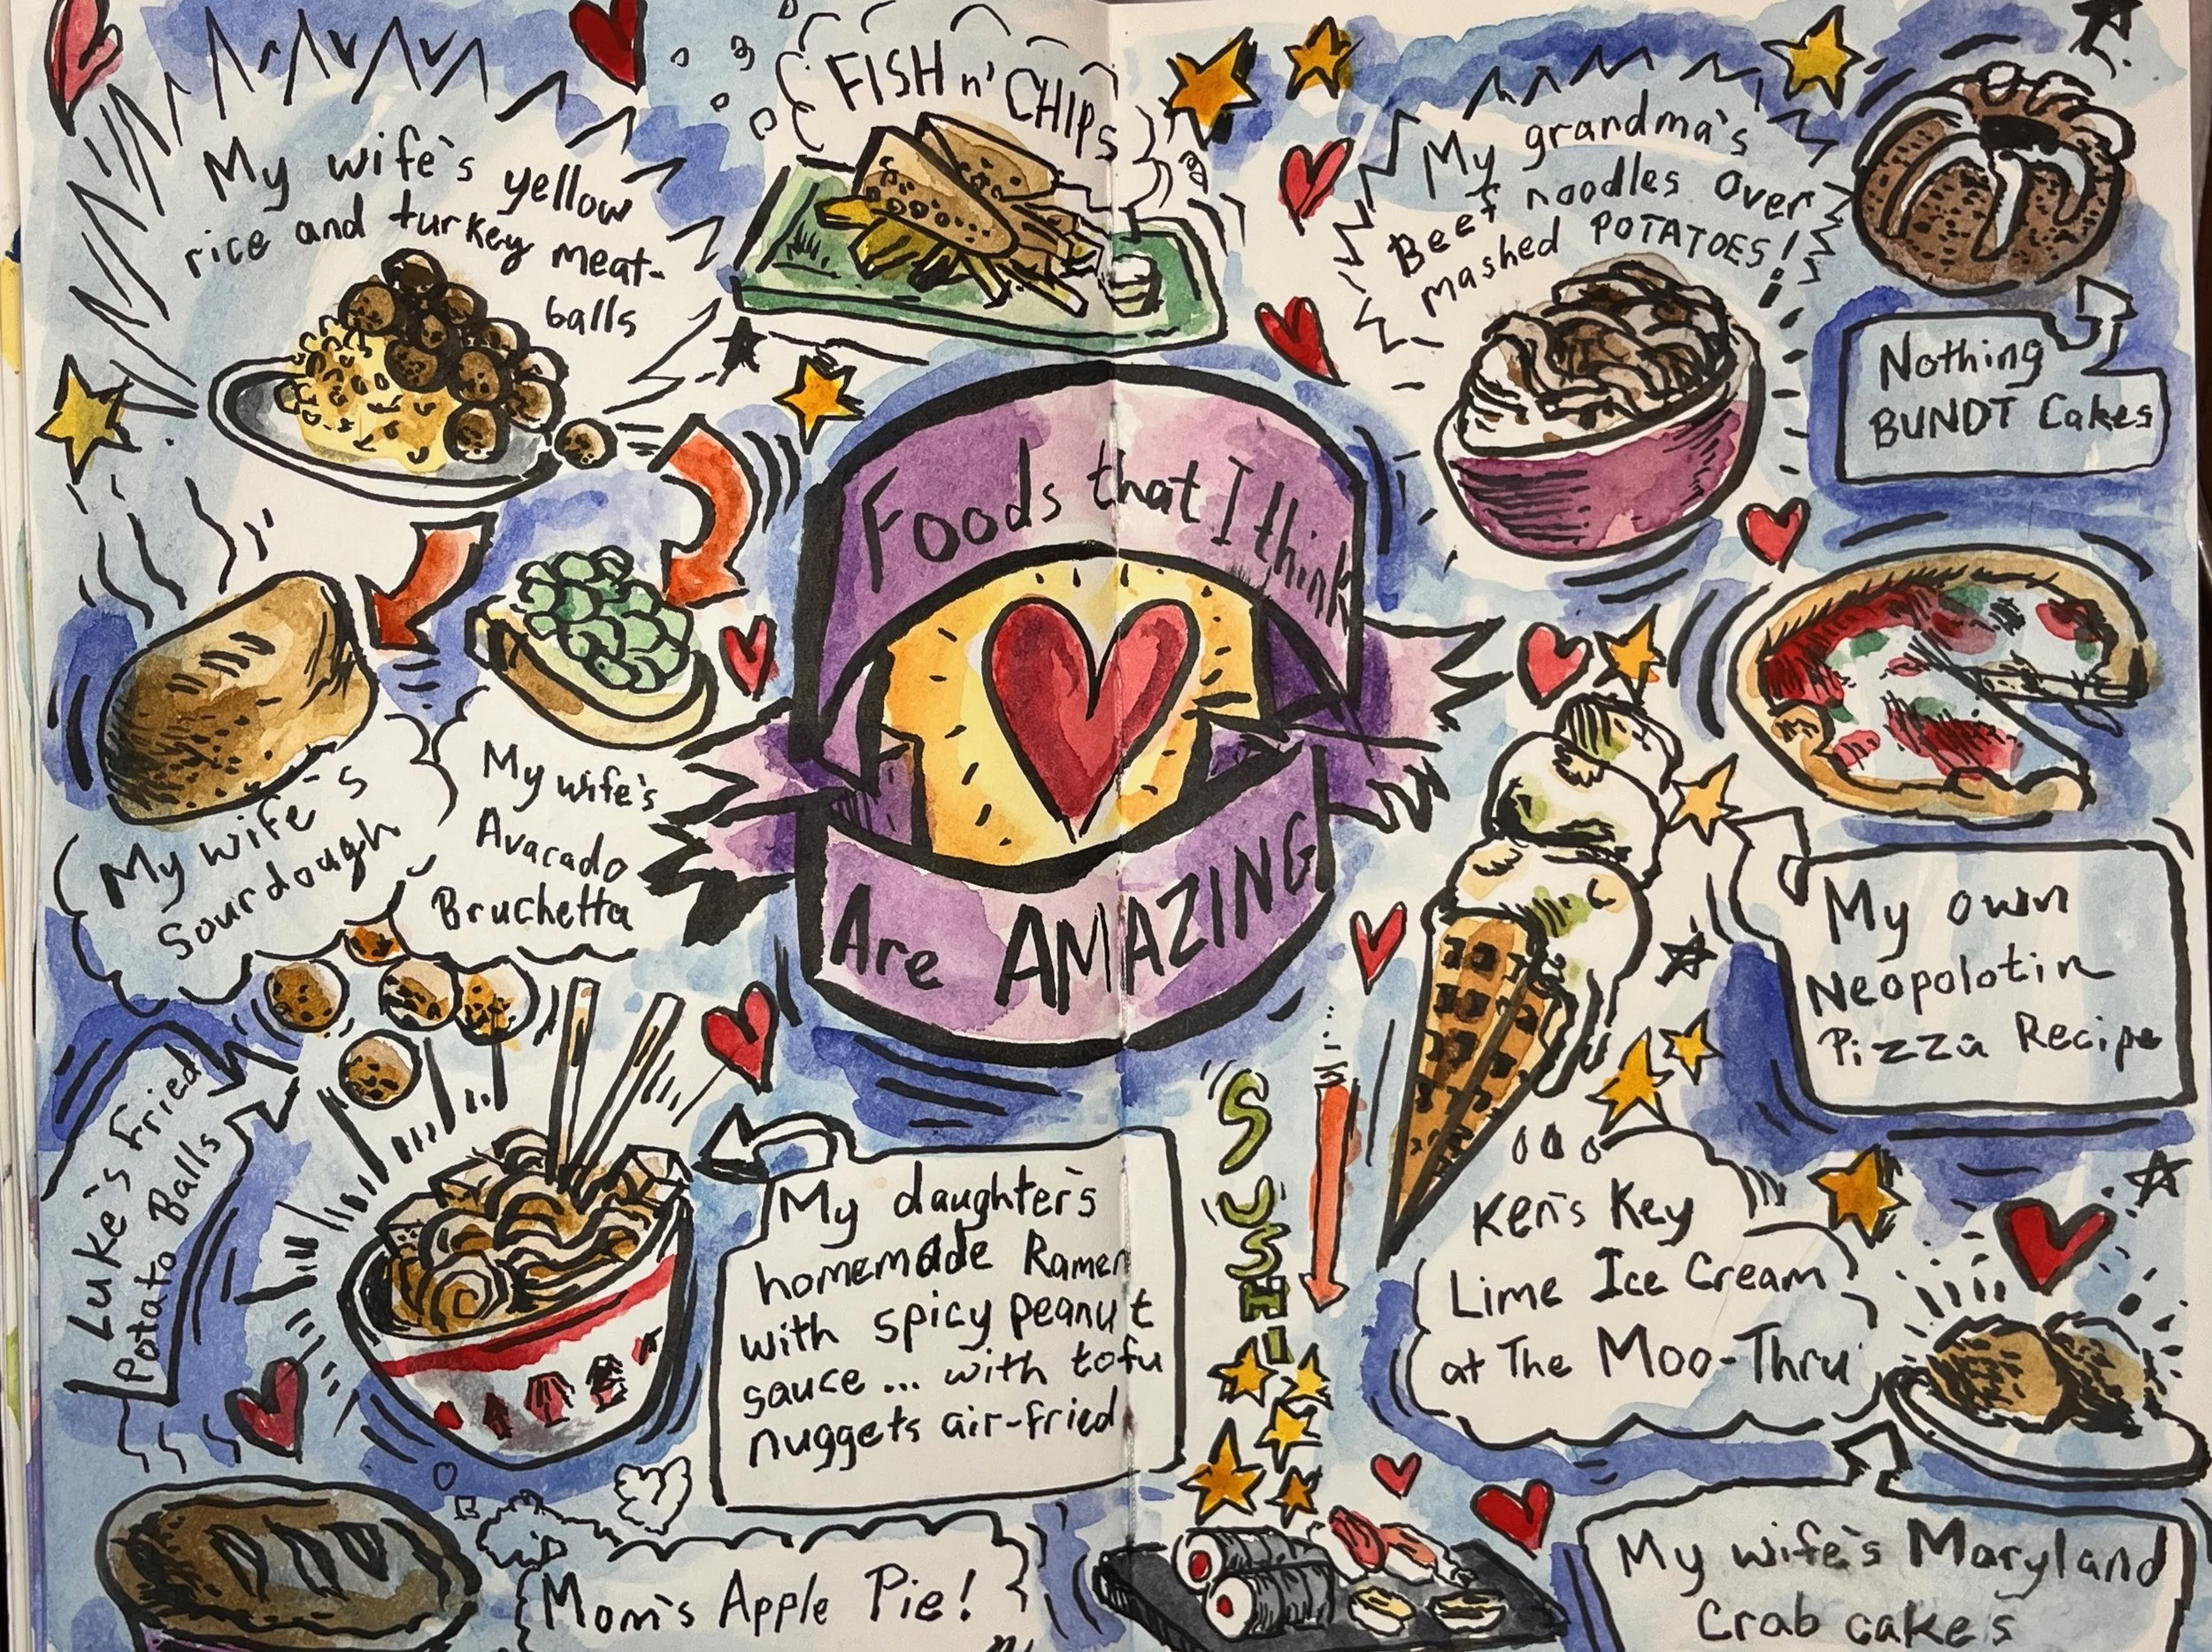 FISH n' CHIPS
My wife's yellow
rice and turkey meat-
balls
My grandma's
Beef noodles over
mashed POTATOES!
Nothing
BUNDT Cakes
Foods that I think
Are AMAZING
My wife's
Sourdough
My wife's
Avacado
Bruchetta
My own
Neopolotin
Pizza Recipe
Luke's Fried
Potato Balls
My daughter's
homemade Ramen
with spicy peanut
sauce... with tofu
nuggets air-fried
SUSHI
Ken's Key
Lime Ice Cream
at The Moo-Thru
Mom's Apple Pie!
My wife's Maryland
Crab cakes